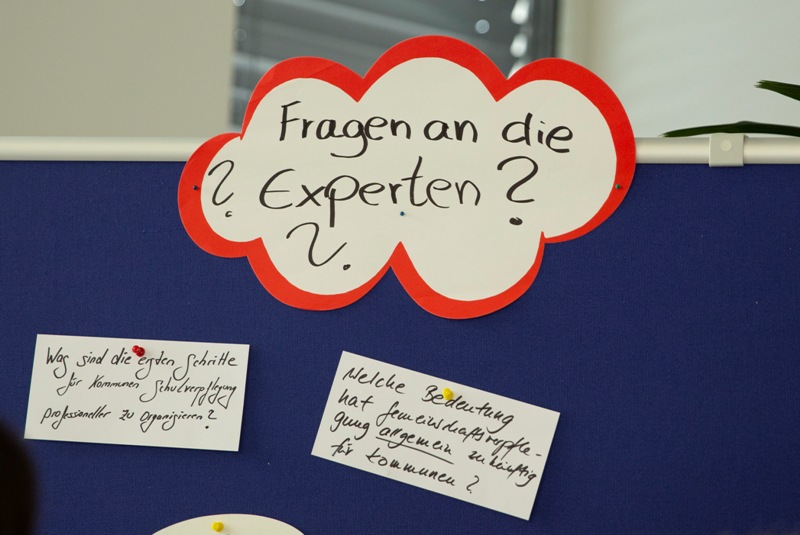 Fragen an die
? Experten ?
?
Was sind die ersten Schritte
für Kommunen Schulverpflegung
professioneller zu organisieren?
Welche Bedeutung
hat Gemeinschaftsverpfle-
gung allgemein zukünftig
für Kommunen?